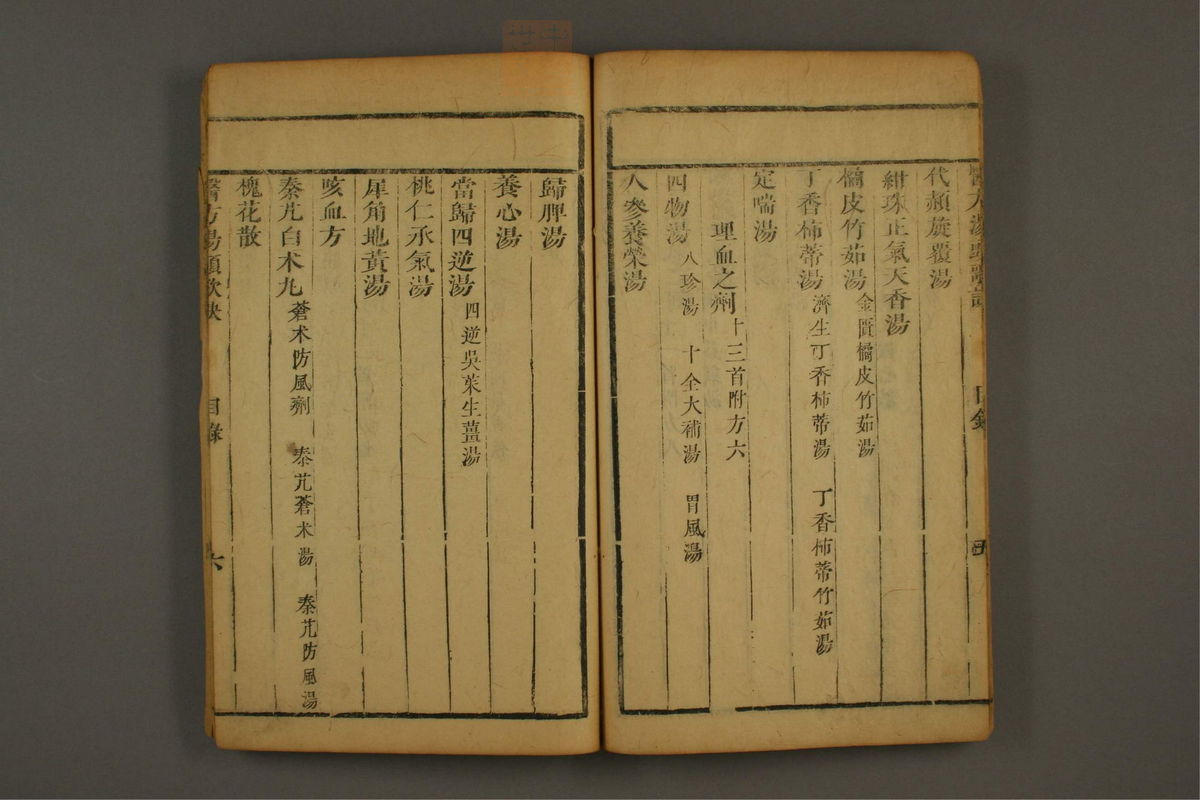 代赭旋覆湯
紺珠正氣天香湯
橘皮竹茹湯 金匱橘皮竹茹湯
丁香柿蒂湯 濟生丁香柿蒂湯 丁香柿蒂竹茹湯
定喘湯
理血之劑 十三首附方六
四物湯 八珍湯 十全大補湯 胃風湯
人參養榮湯
歸脾湯
養心湯
當歸四逆湯 四逆吳茱生薑湯
桃仁承氣湯
犀角地黃湯
咳血方
秦艽白朮丸 蒼朮防風劑 秦艽蒼朮湯 秦艽防風湯
槐花散
醫方湯頭歌訣 目錄 六